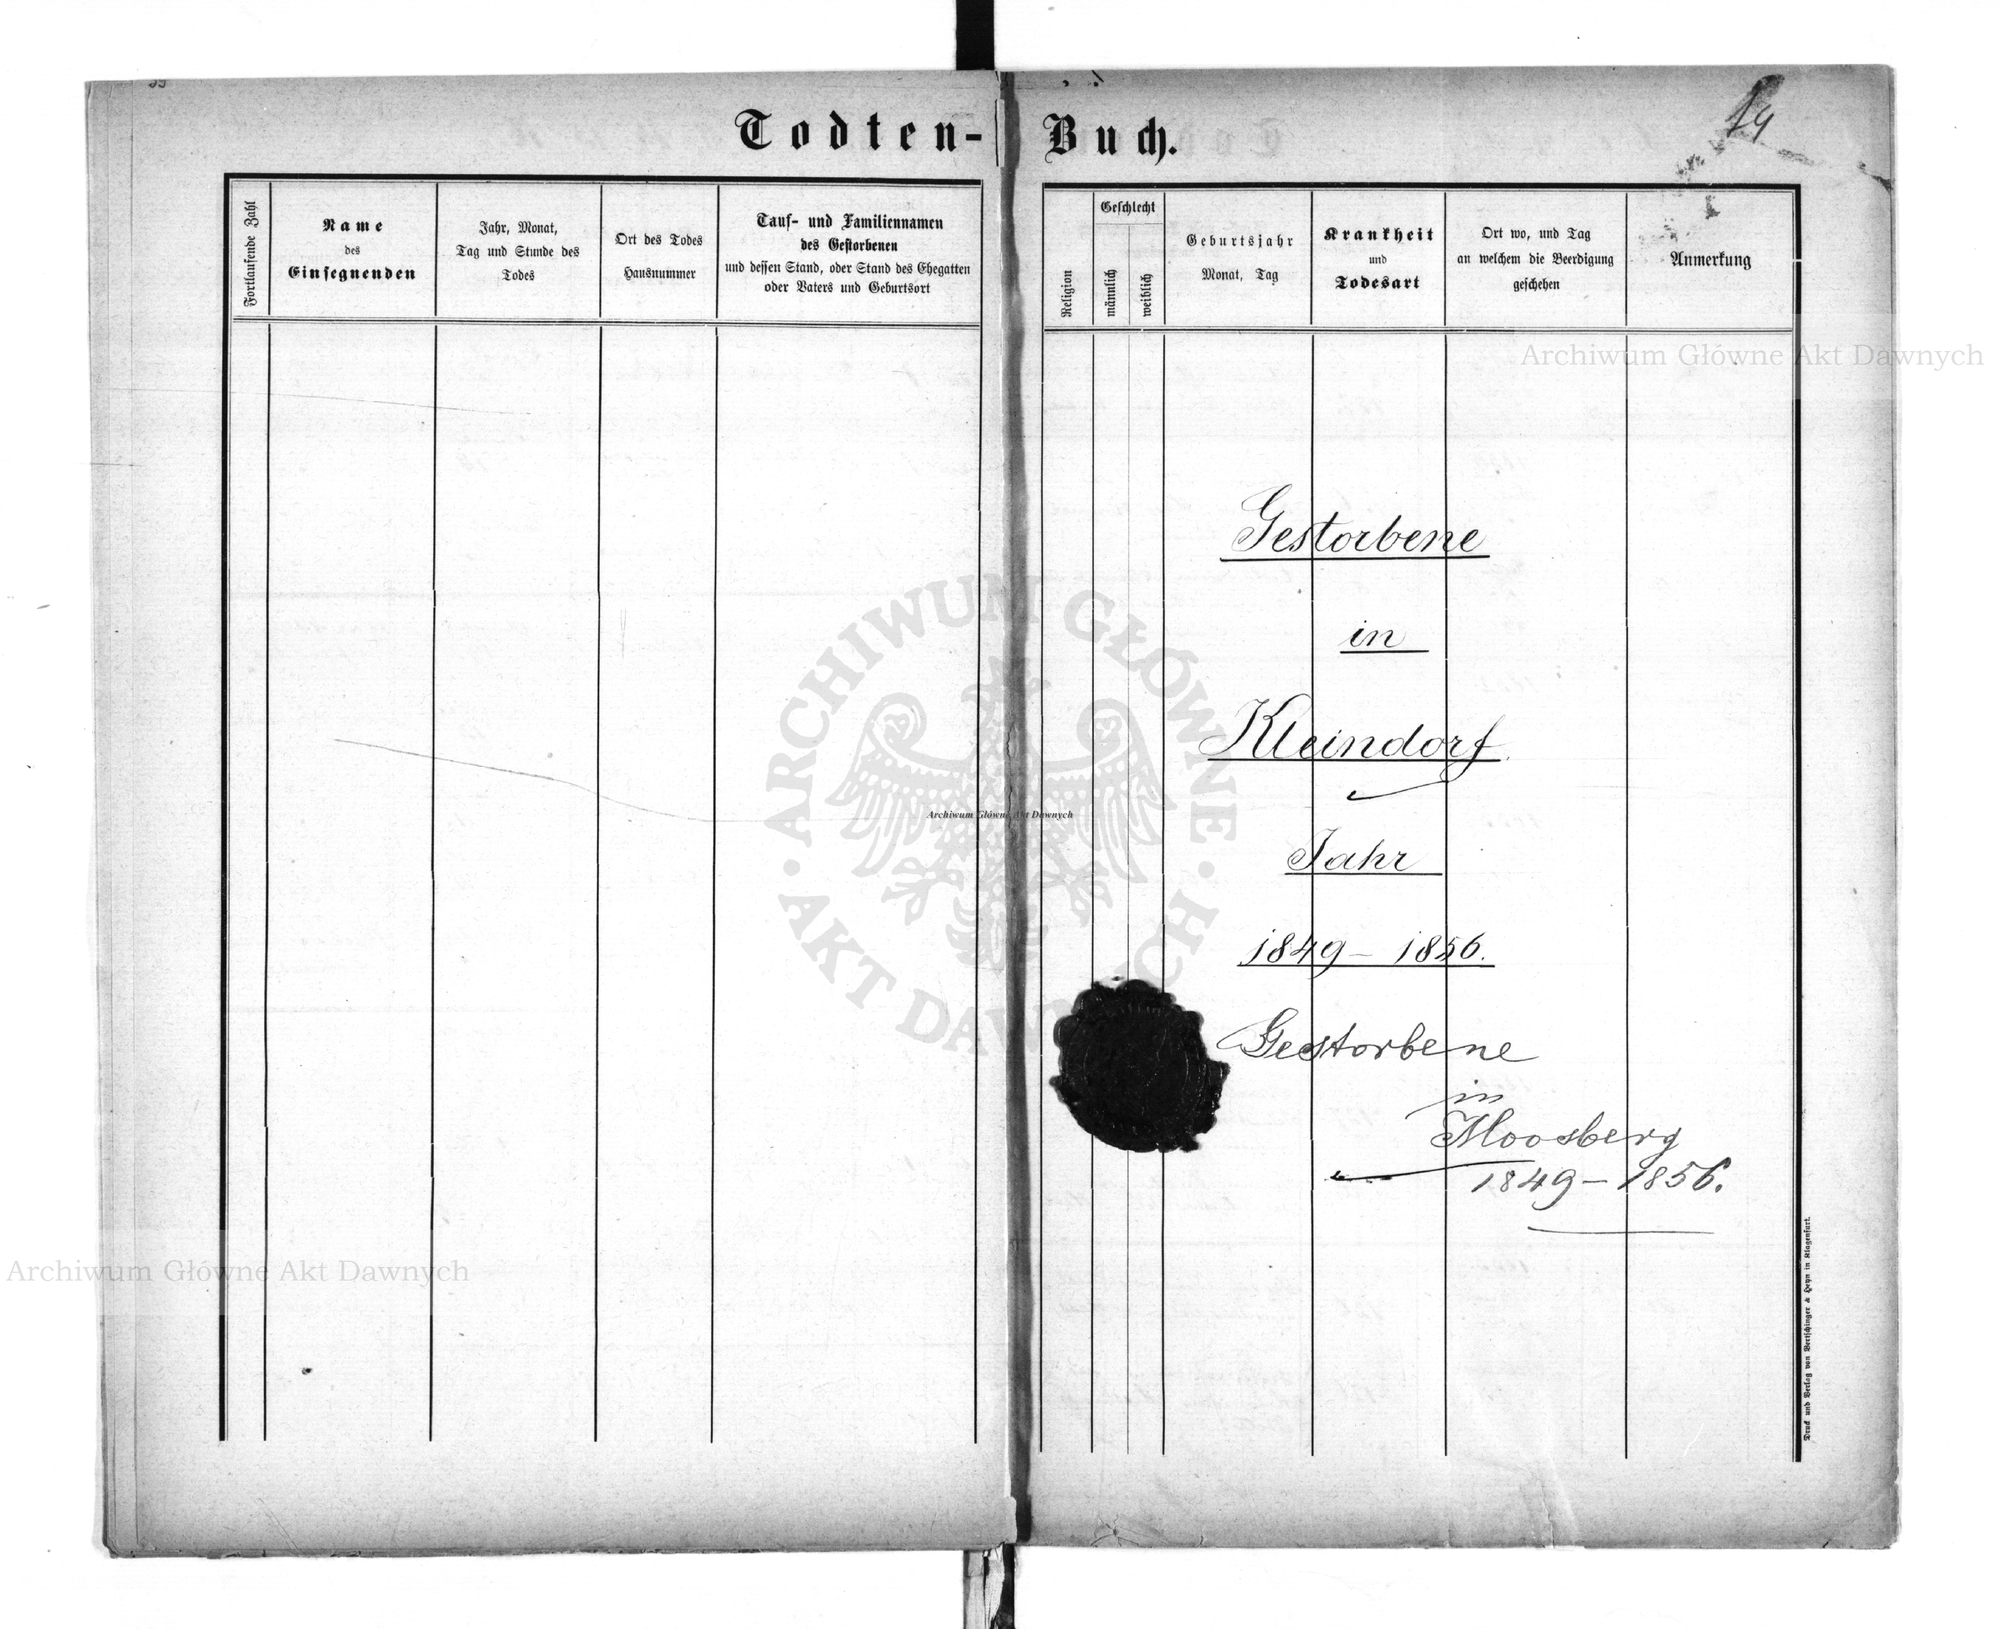 Todten-Buch.
14
Fortlaufende Zahl
Name
des
Einsegnenden
Jahr, Monat,
Tag und Stunde des
Todes
Ort des Todes
Hausnummer
Tauf- und Familiennamen
des Gestorbenen
und dessen Stand, oder Stand des Ehegatten
oder Vaters und Geburtsort
Religion
Geschlecht
männlich
weiblich
Geburtsjahr
Monat, Tag
Krankheit
und
Todesart
Ort wo, und Tag
an welchem die Beerdigung
geschehen
Anmerkung
Archiwum Główne Akt Dawnych
Gestorbene
in
Kleindorf.
Jahr
1849 – 1856.
Gestorbene
in
Moosberg
1849 – 1856.
ARCHIWUM GŁÓWNE AKT DAWNYCH
Archiwum Główne Akt Dawnych
Archiwum Główne Akt Dawnych
Druck und Verlag von Bertschinger & Heyn in Klagenfurt.